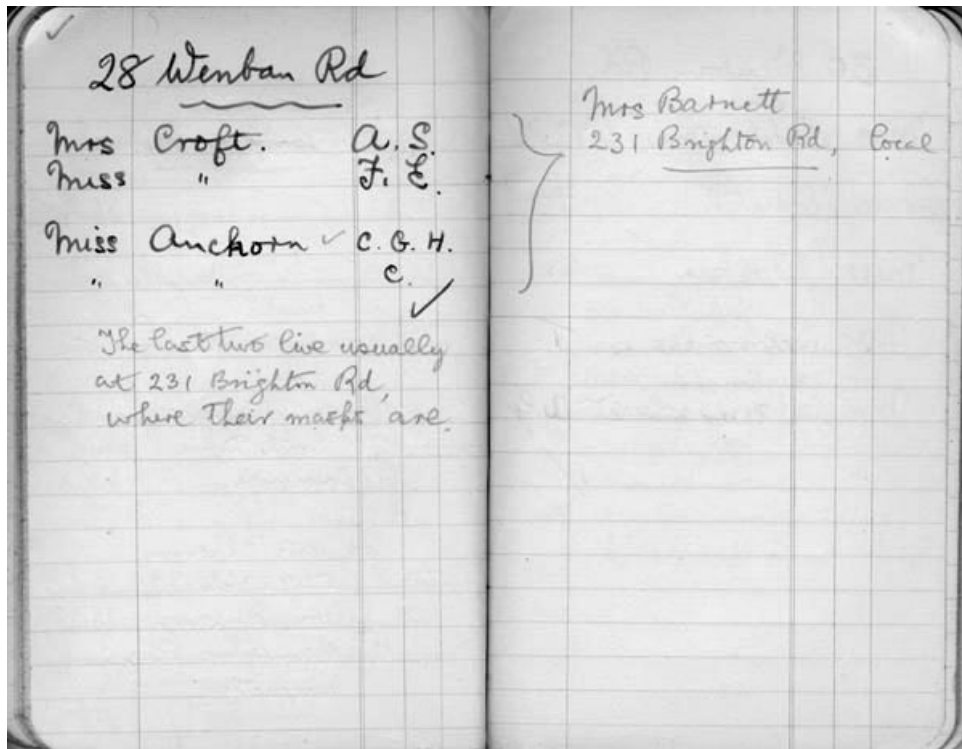 28 Wenban Rd
Mrs Croft. A. S.
Miss " F. E.
Miss Anckorn ✓ C. G. H.
" " C.
✓
The last two live usually
at 231 Brighton Rd,
where their masks are.
Mrs Barnett
231 Brighton Rd, local